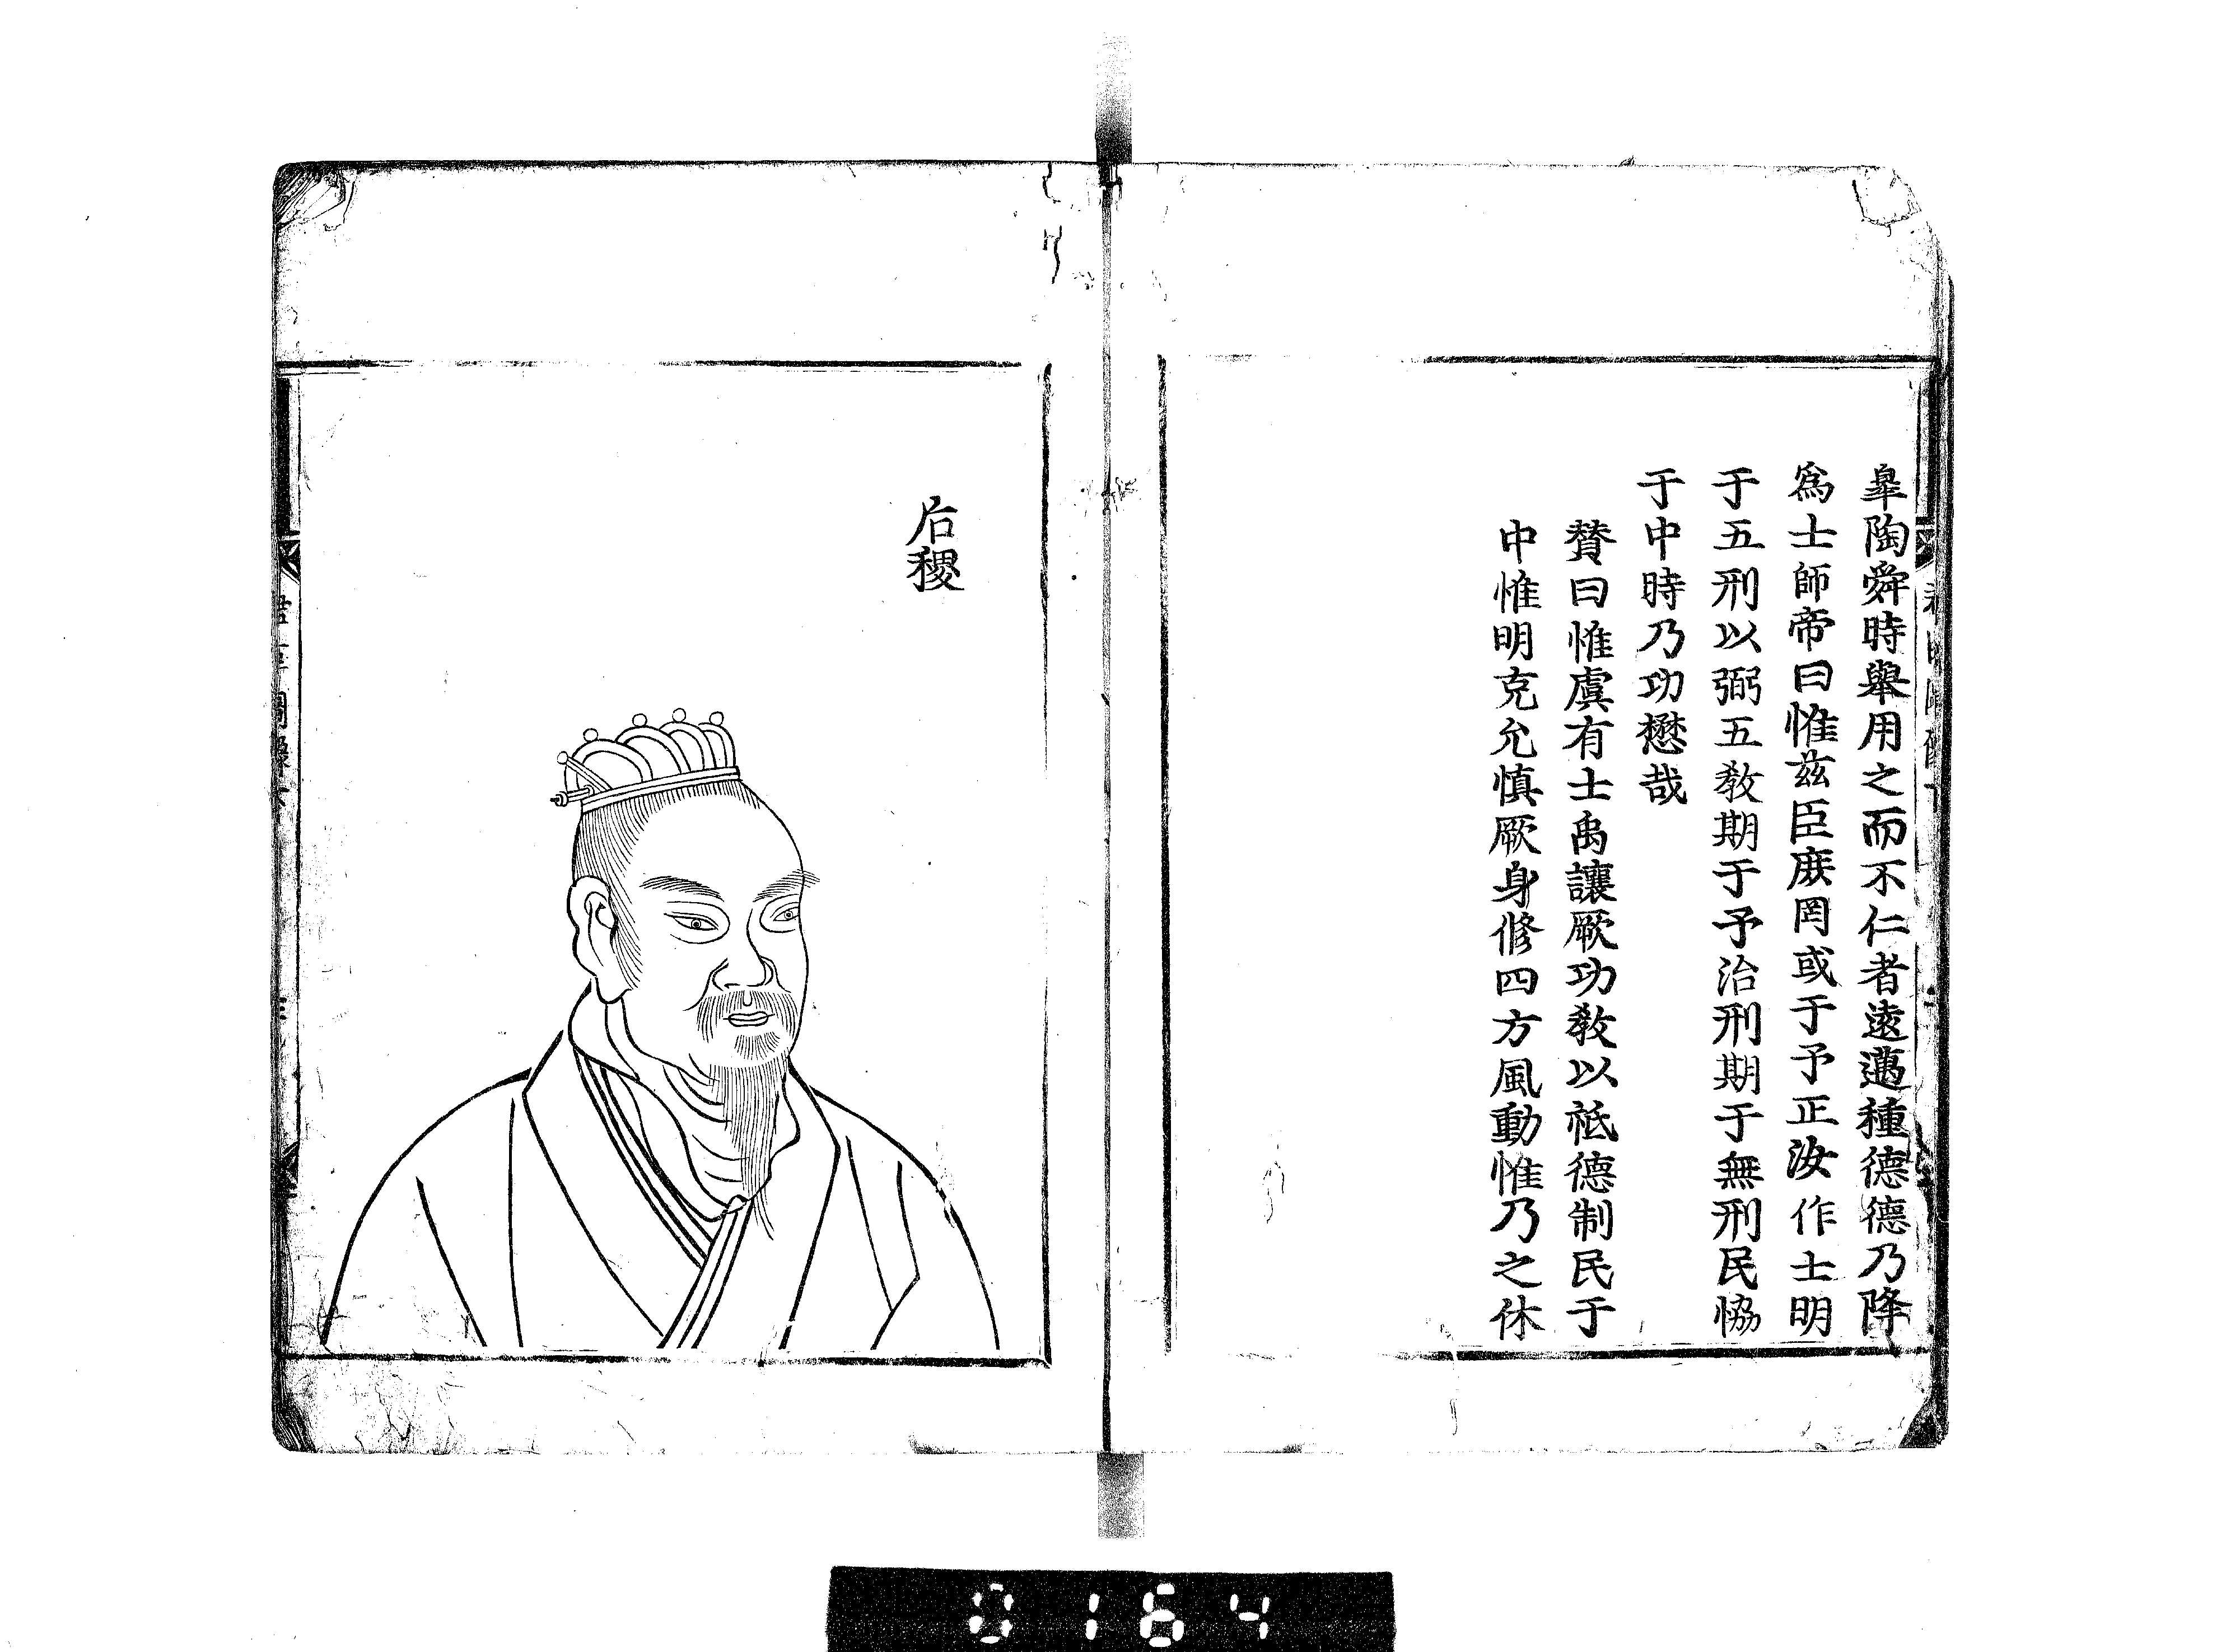 皐陶舜時舉用之而不仁者遠邁種德德乃降
爲士師帝曰惟茲臣庶罔或于予正汝作士明
于五刑以弼五教期于予治刑期于無刑民恊
于中時乃功懋哉
賛曰惟虞有士禹讓厥功敎以祗德制民于
中惟明克允慎厥身修四方風動惟乃之休
后稷
0164